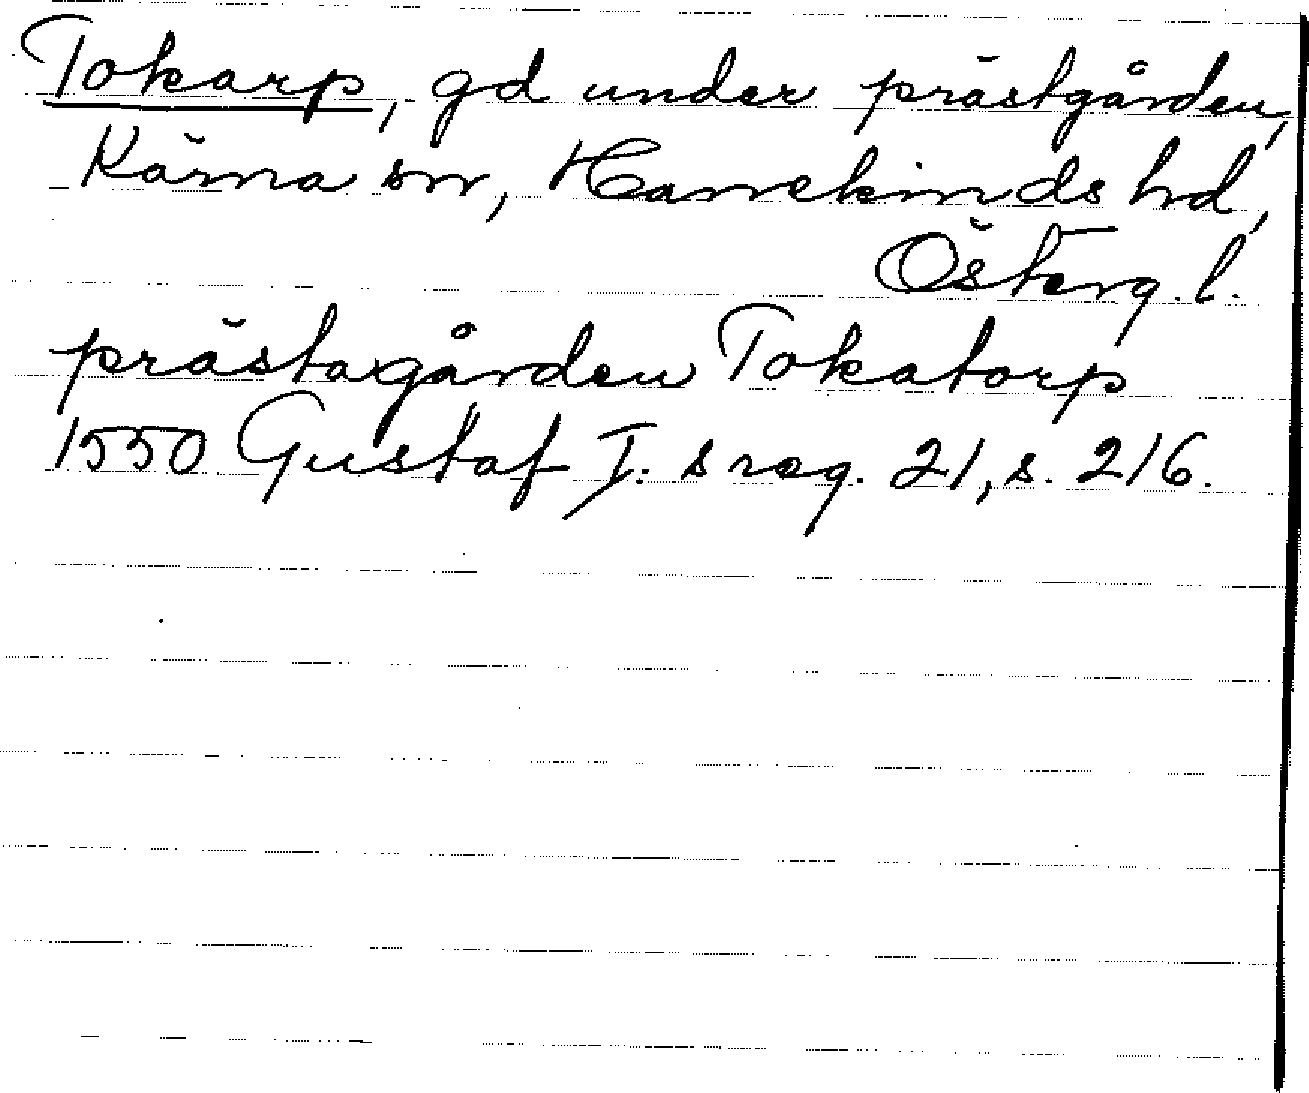 Tokarp, gd under prästgården,
Kärna sn, Hanekinds hd,
Österg. l.
prästagården Tokatorp
1550 Gustaf I:s reg. 21, s. 216.